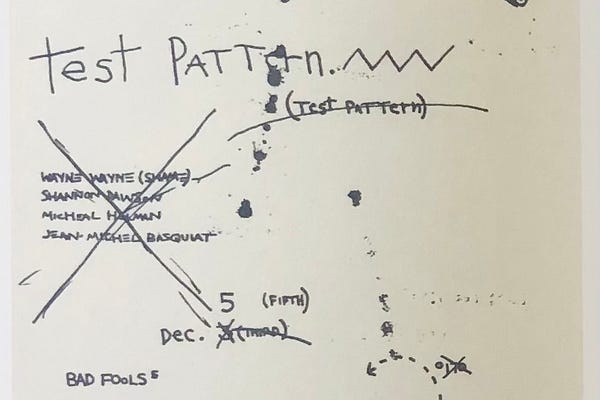 Test PATTern.
(Test PATTern)
WAYNE WAYNE (SHAME)
SHANNON DAWSON
MICHEAL HOLMAN
JEAN-MICHEL BASQUIAT
5 (FIFTH)
Dec. 3 (THIRD)
BAD FOOLS